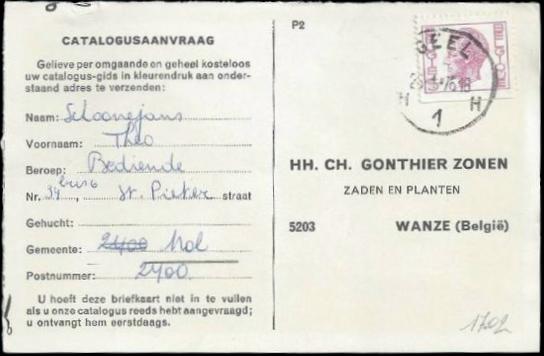 CATALOGUSAANVRAAG
Gelieve per omgaande en geheel kosteloos
uw catalogus-gids in kleurendruk aan onder-
staand adres te verzenden:
Naam: Schoonejans
Voornaam: Theo
Beroep: Bediende
Nr. 34 bus 6, St. Pieter straat
Gehucht:
Gemeente: 2400 Mol
Postnummer: 2400
U hoeft deze briefkaart niet in te vullen
als u onze catalogus reeds hebt aangevraagd;
u ontvangt hem eerstdaags.
P2
GEEL
H 1 H
HH. CH. GONTHIER ZONEN
ZADEN EN PLANTEN
5203 WANZE (België)
1702